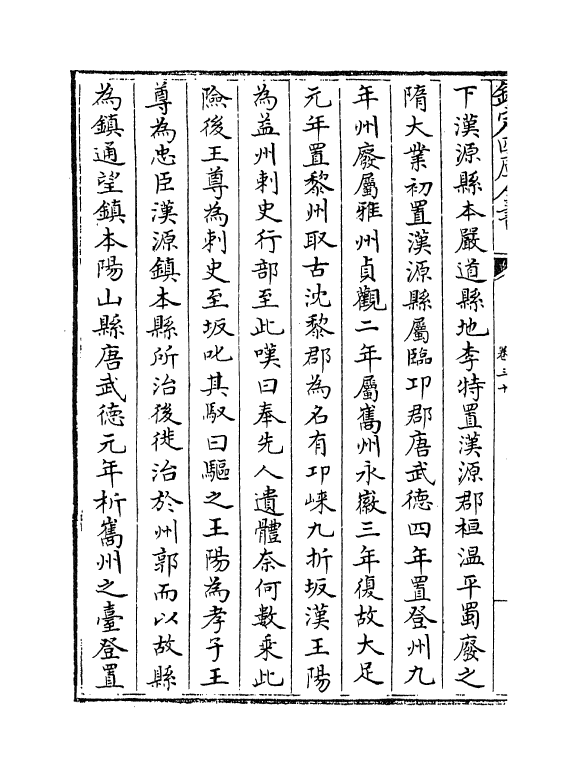 欽定四庫全書
卷三十
下漢源縣本嚴道縣地李特置漢源郡桓温平蜀廢之
隋大業初置漢源縣屬臨卭郡唐武徳四年置登州九
年州廢屬雅州貞觀二年屬嶲州永徽三年復故大足
元年置黎州取古沈黎郡為名有卭崍九折坂漢王陽
為益州刺史行部至此嘆曰奉先人遺體奈何數乗此
險後王尊為刺史至坂叱其馭曰驅之王陽為孝子王
尊為忠臣漢源鎮本縣所治後徙治於州郭而以故縣
為鎮通望鎮本陽山縣唐武徳元年析嶲州之臺登置